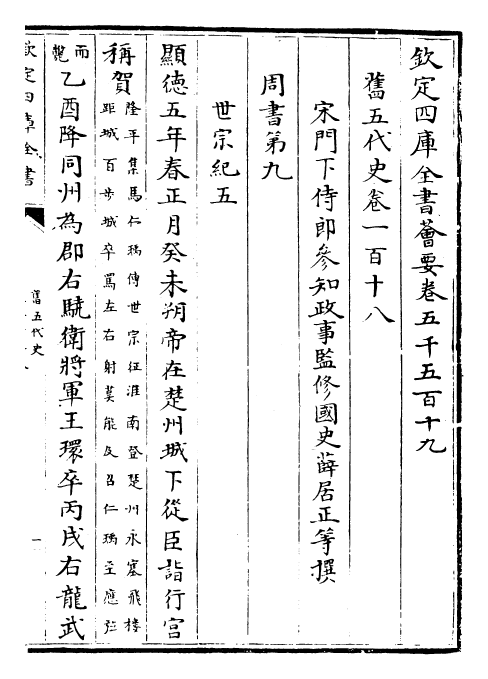 欽定四庫全書薈要卷五千五百十九
舊五代史卷一百十八
宋門下侍郎參知政事監修國史薛居正等撰
周書第九
世宗紀五
顯德五年春正月癸未朔帝在楚州城下從臣詣行宮
稱賀
隆平集馬仁瑀傳世宗征淮南登楚州水寨飛樓
距城百步城卒罵左右射莫能及召仁瑀至應弦
而
斃
乙酉降同州為郡右驍衛將軍王環卒丙戌右龍武
欽定四庫全書
舊五代史
一